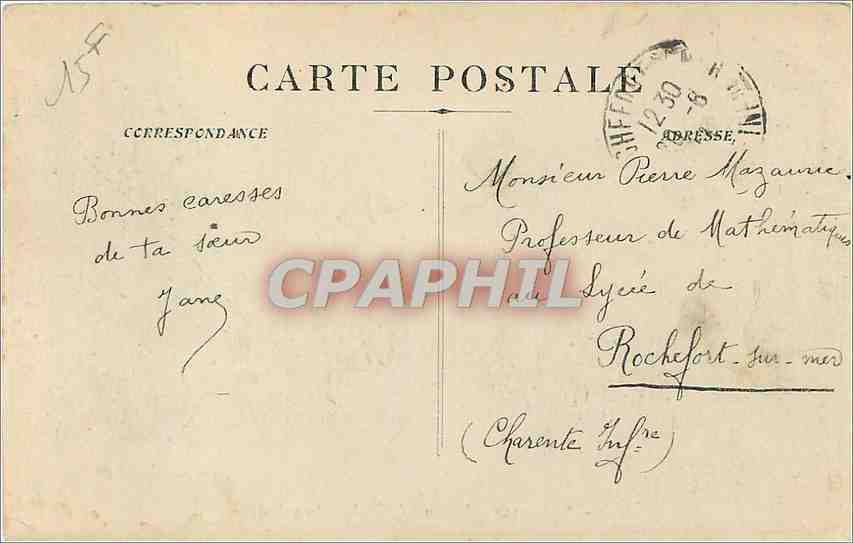 15 F
CARTE POSTALE
CORRESPONDANCE
ADRESSE
12 30
-8
Bonnes caresses
de ta sœur
Jane
Monsieur Pierre Mazauric.
Professeur de Mathématiques
au Lycée de
Rochefort-sur-mer
(Charente Infre)
CPAPHIL